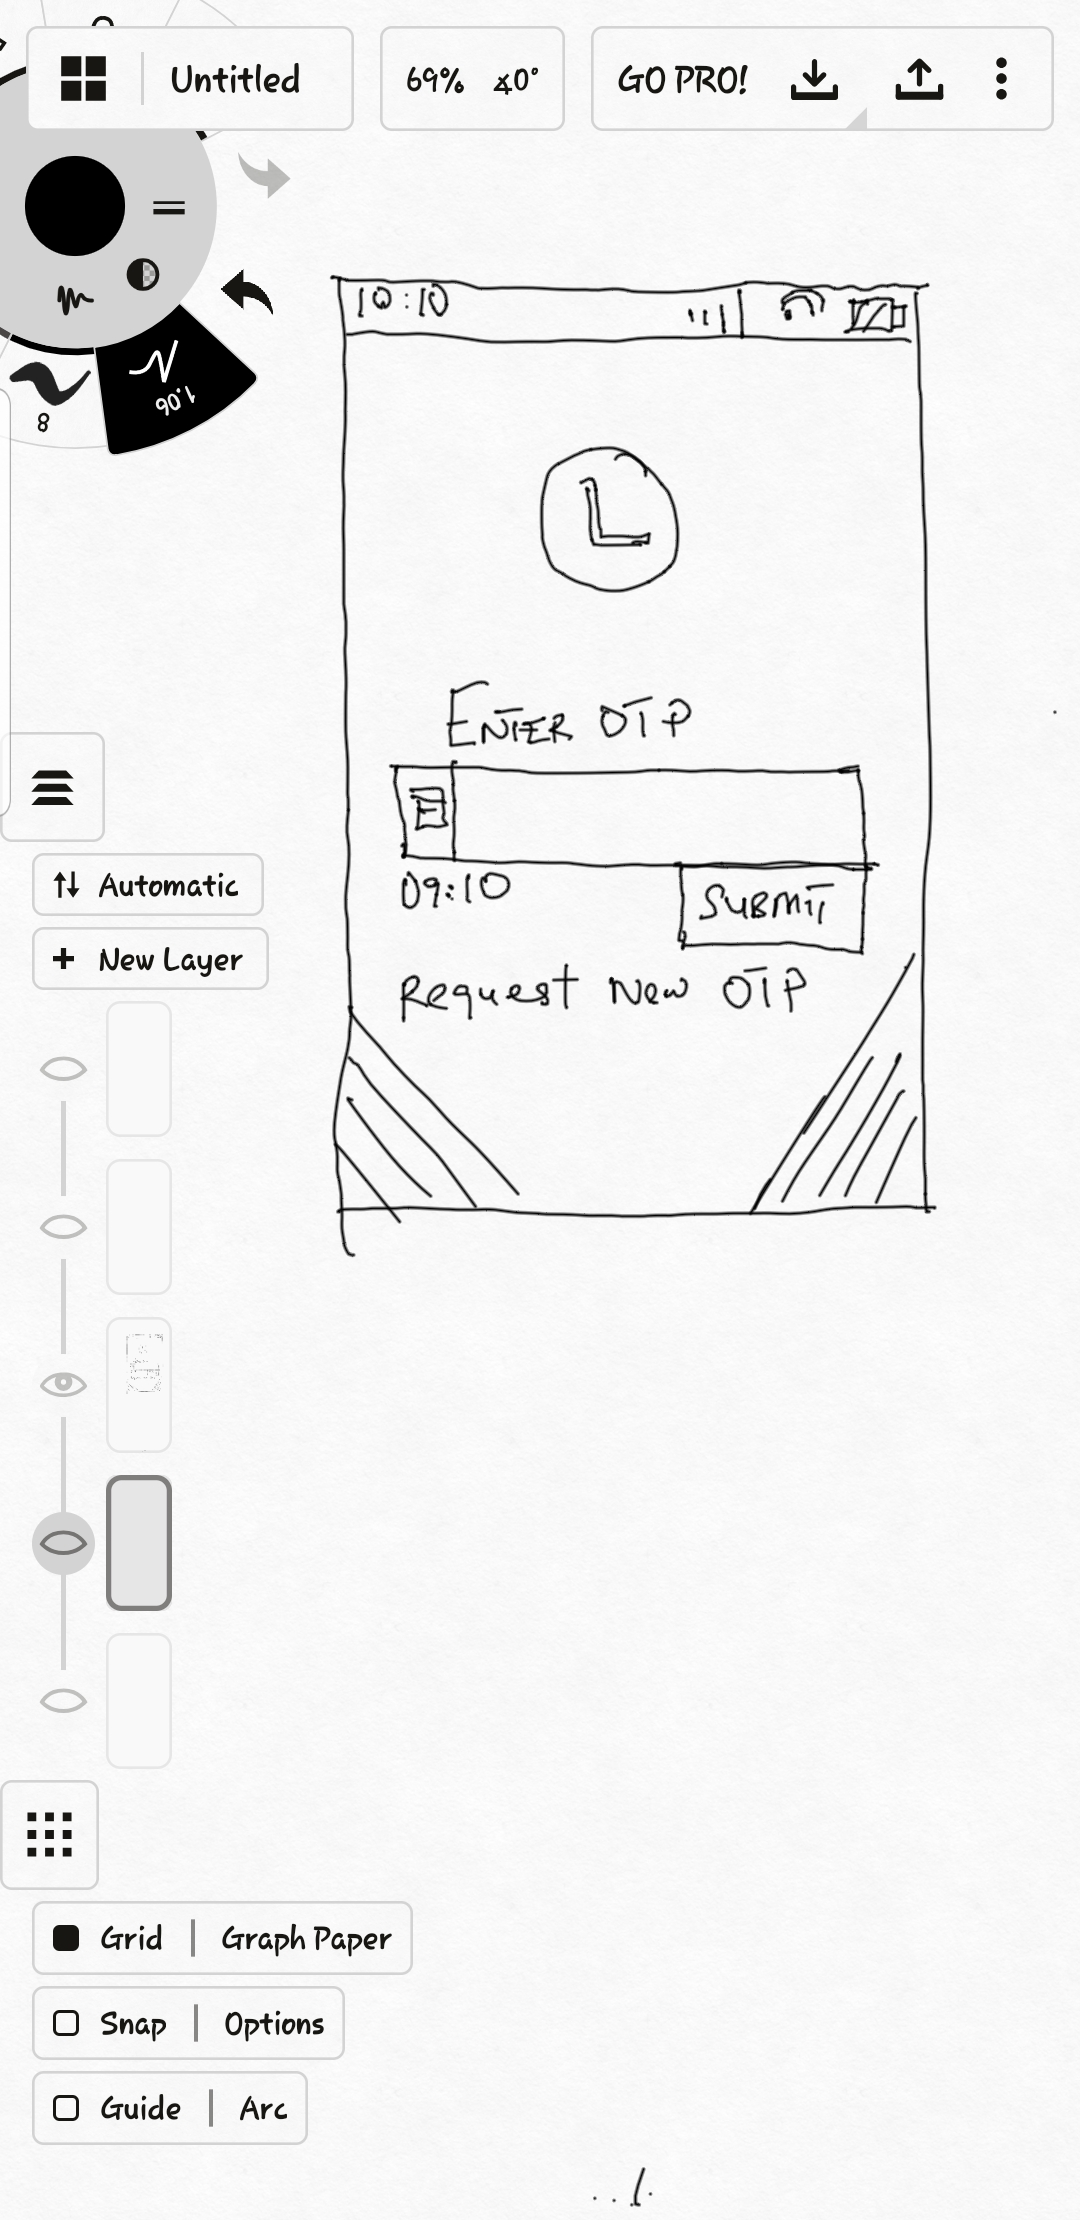 Untitled
69% ∡0°
GO PRO!
8
1.06
10:10
L
ENTER OTP
09:10
SUBMIT
Request New OTP
Automatic
New Layer
Grid | Graph Paper
Snap | Options
Guide | Arc